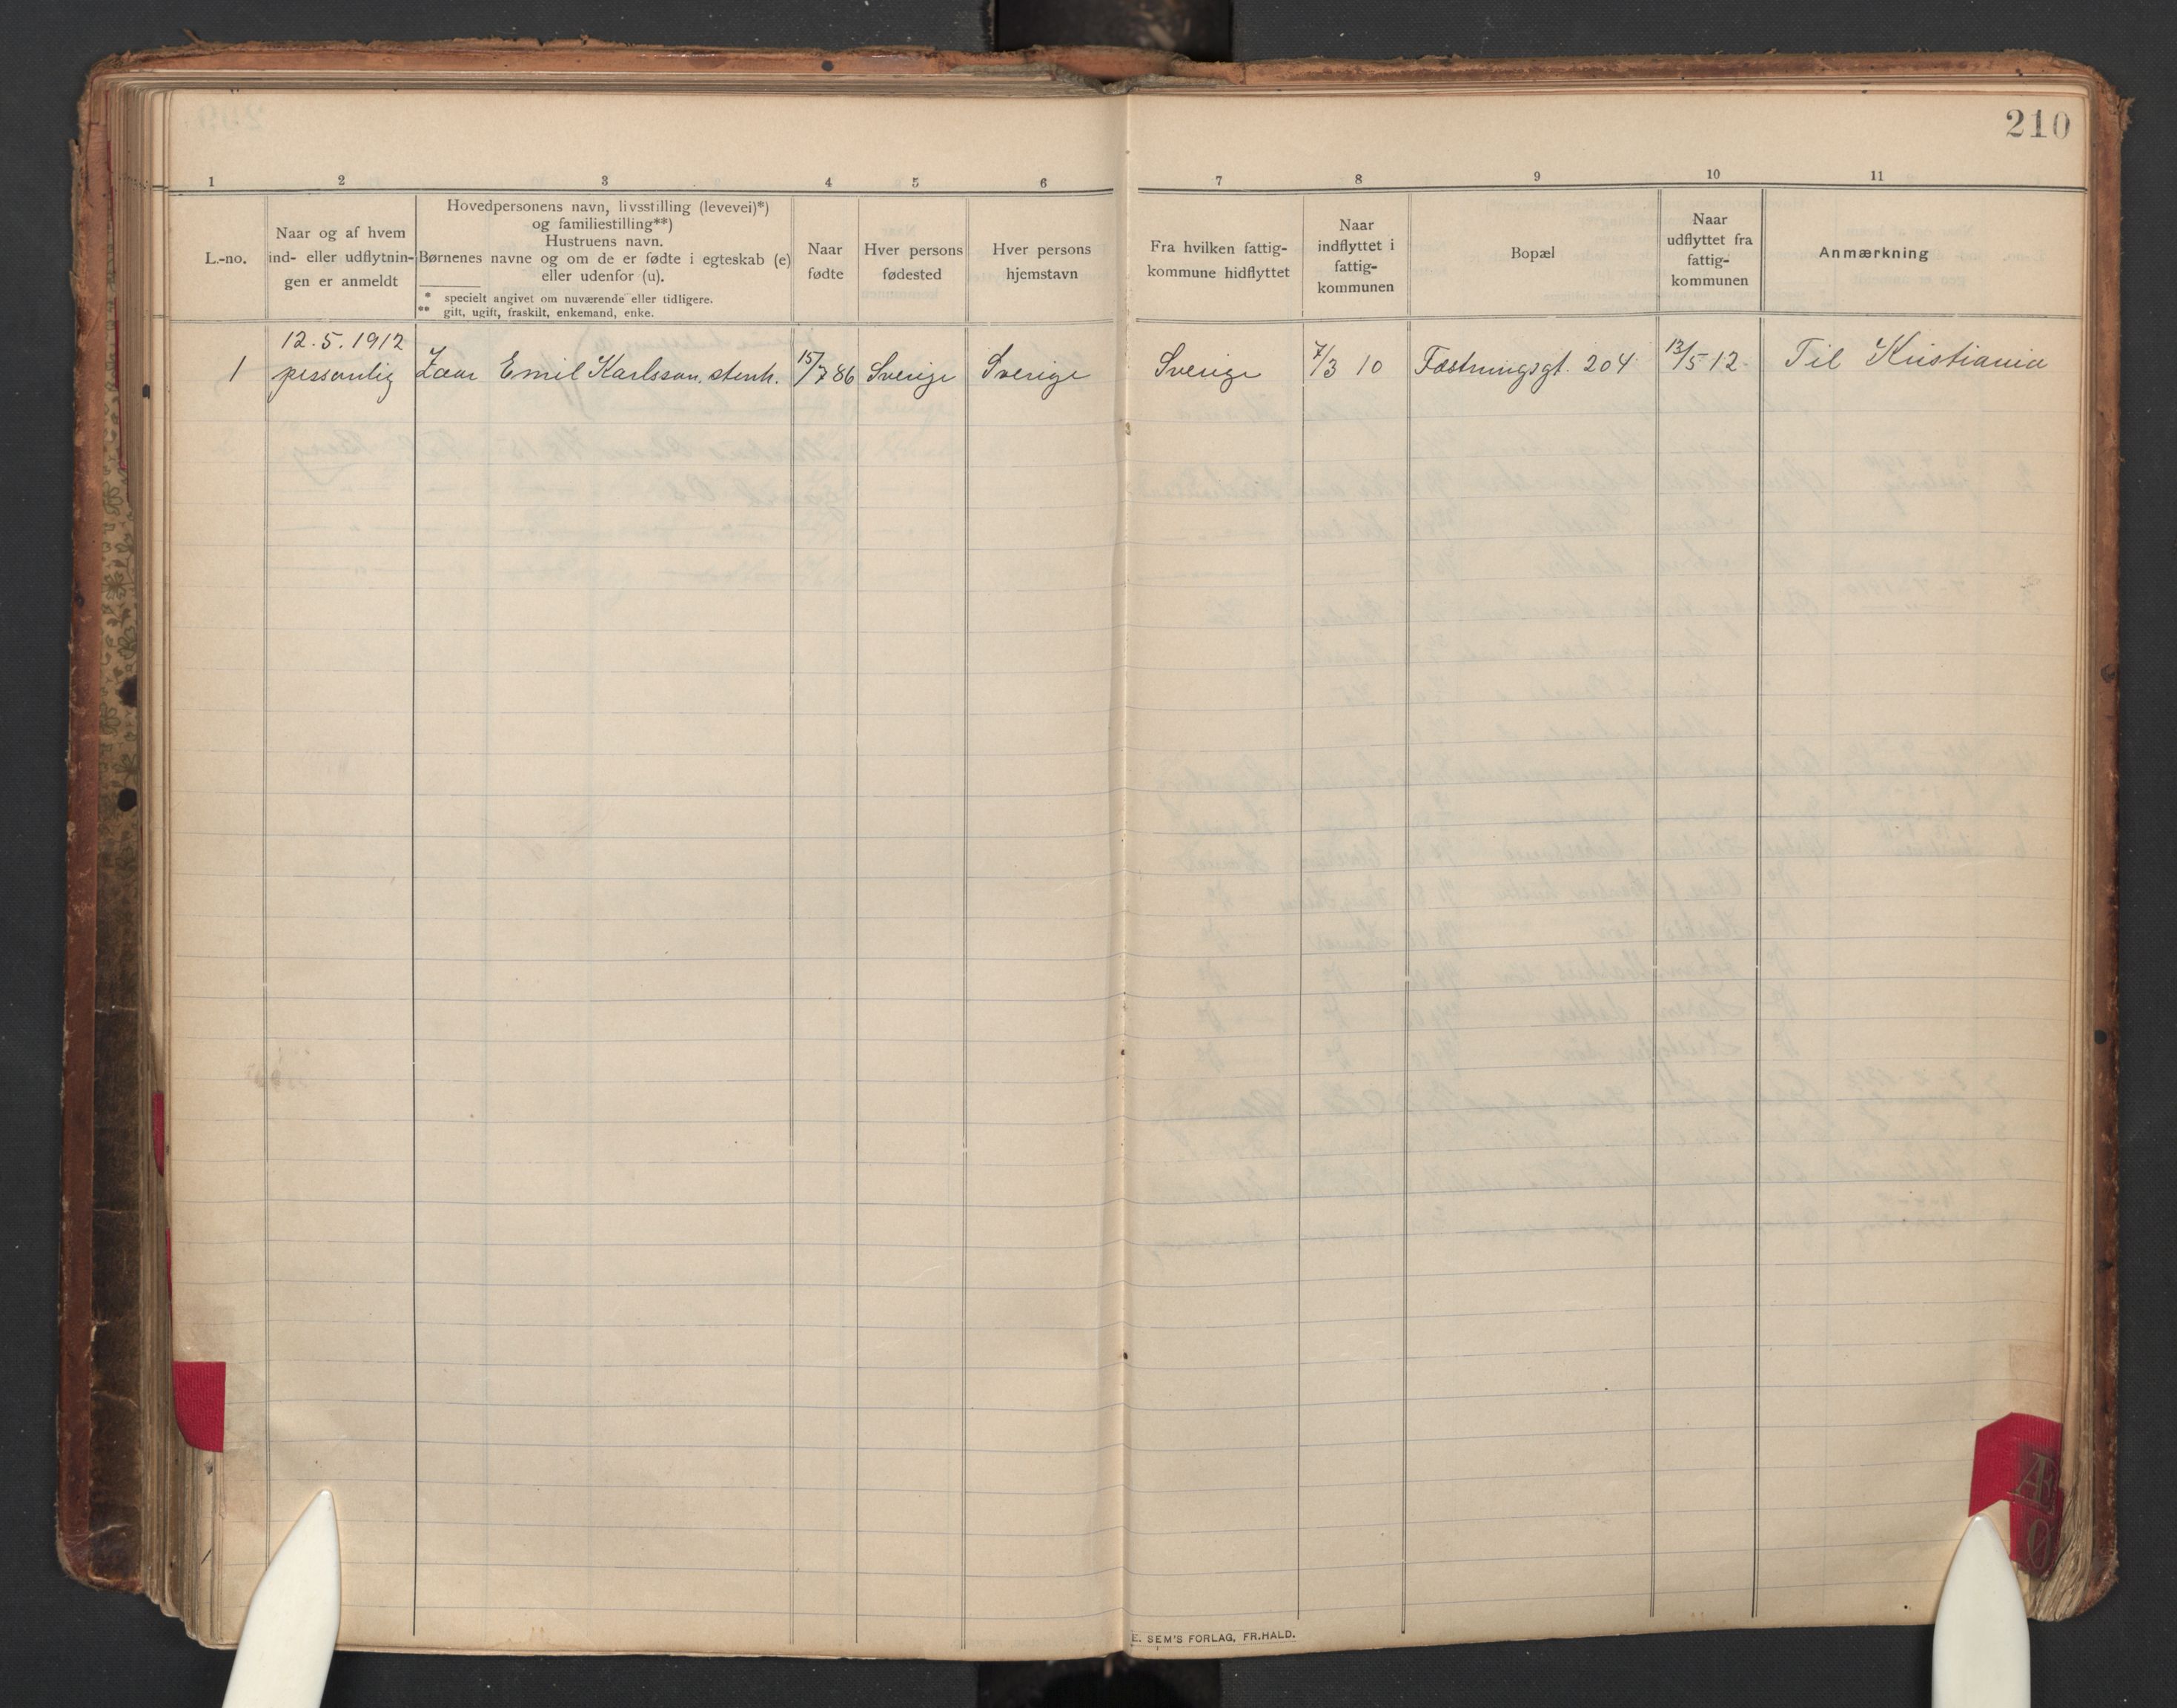 210
1 2 3 4 5 6 7 8 9 10 11
L.-no.
Naar og af hvem
ind- eller udflytnin-
gen er anmeldt
Hovedpersonens navn, livsstilling (levevei)*)
og familiestilling**)
Hustruens navn.
Børnenes navne og om de er fødte i egteskab (e)
eller udenfor (u).
* specielt angivet om nuværende eller tidligere.
** gift, ugift, fraskilt, enkemand, enke.
Naar
fødte
Hver persons
fødested
Hver persons
hjemstavn
Fra hvilken fattig-
kommune hidflyttet
Naar
indflyttet i
fattig-
kommunen
Bopæl
Naar
udflyttet fra
fattig-
kommunen
Anmærkning
12.5.1912
1 personlig Zaar Emil Karlsson, stenh. 15/7 86 Sverige Sverige Sverige 7/3 10 Fæstningsgt. 204 13/5 12. Til Kristiania
E. SEM'S FORLAG, FR.HALD.
Æ
Ø